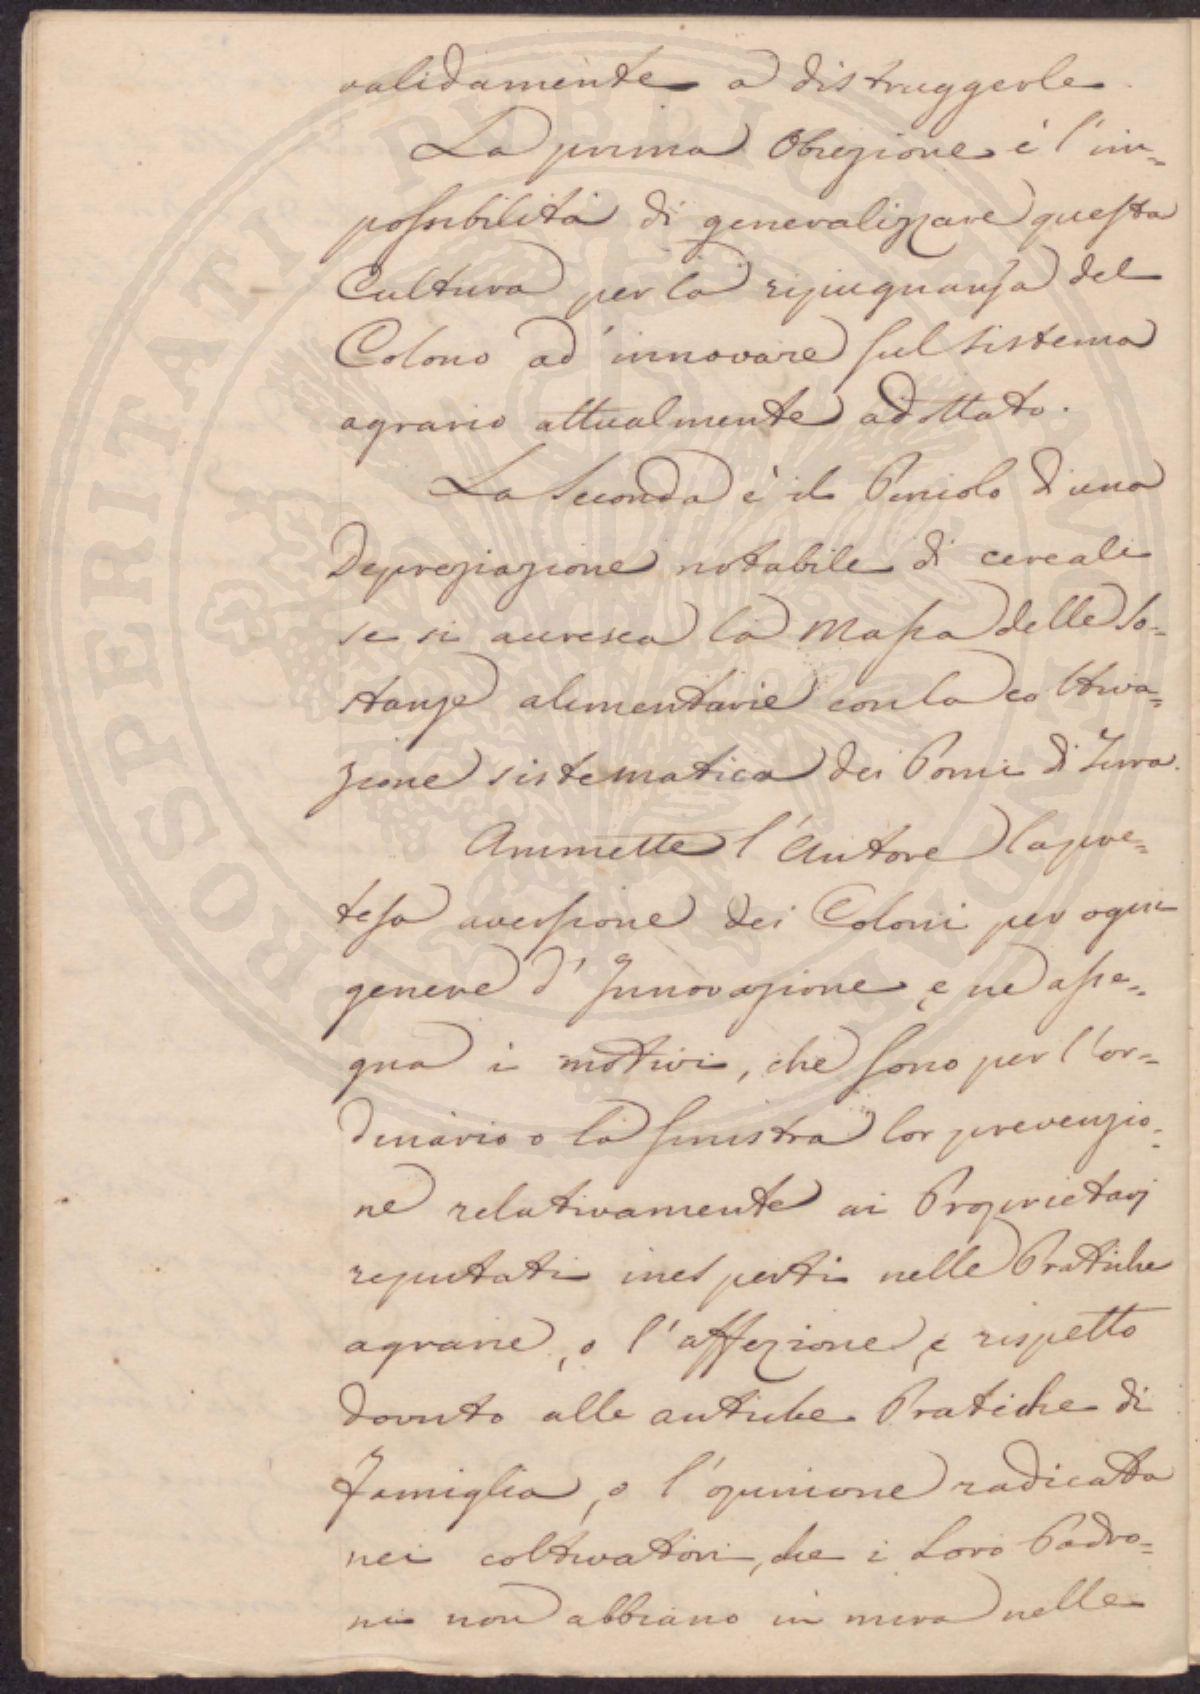 validamente a distruggerle.
La prima Obiezione è l'im=
possibilità di generalizzare questa
Cultura per la ripugnanza del
Colono ad' innovare sul sistema
agrario attualmente adottato.
La Seconda è il Pericolo d'una
Depreziazione notabile di cereali
se si accresca la Massa delle So=
stanze alimentarie con la coltiva=
zione sistematica dei Pomi di Terra.
Ammette l'Autore la pre=
tesa aversione dei Coloni per ogni
genere d'Innovazione, e ne asse=
gna i motivi, che sono per l'or=
dinario o la sinistra lor prevenzio=
ne relativamente ai Proprietarj
reputati inesperti nelle Pratiche
agrarie, o l'affezione, e rispetto
dovuto alle antiche Pratiche di
Famiglia, o l'opinione radicata
nei coltivatori, che i Loro Padro=
ni non abbiano in mira nelle
PROSPERITATI PUBLICAE